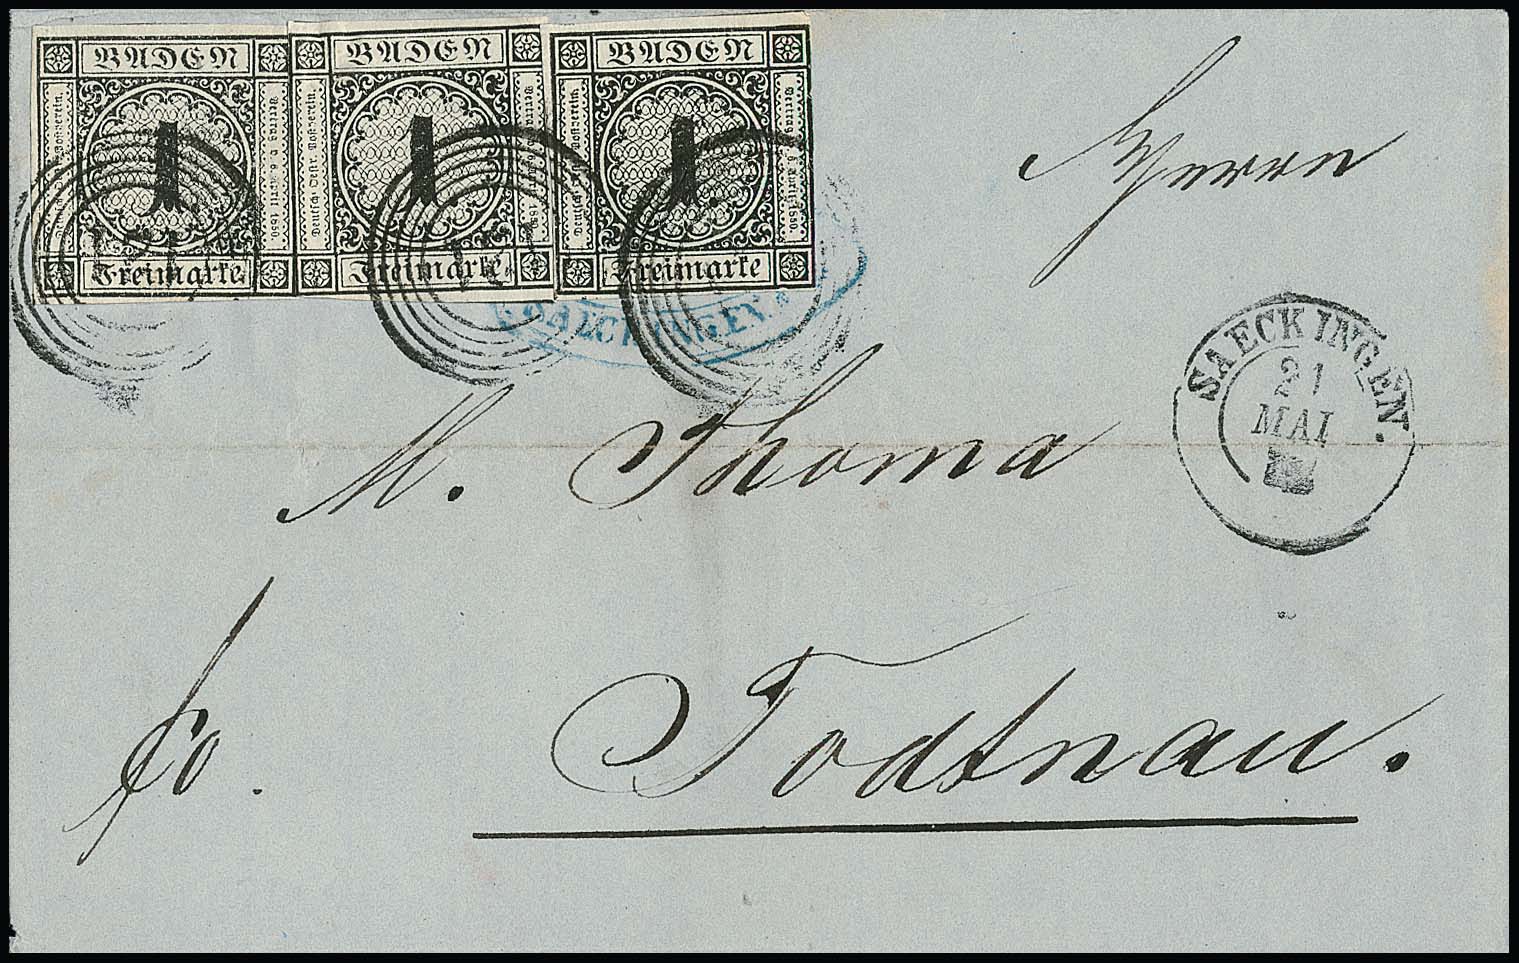 BADEN BADEN BADEN
Deutsch. Oestr. Postverein. Vertrag v. 6. April 1850.
Deutsch. Oestr. Postverein. Vertrag v. 6. April 1850.
Deutsch. Oestr. Postverein. Vertrag v. 6. April 1850.
1 1 1
Freimarke. Freimarke Freimarke
SAECKINGEN.
Herrn
SAECKINGEN.
21
MAI
M. Thoma
fo.
Todtnau.